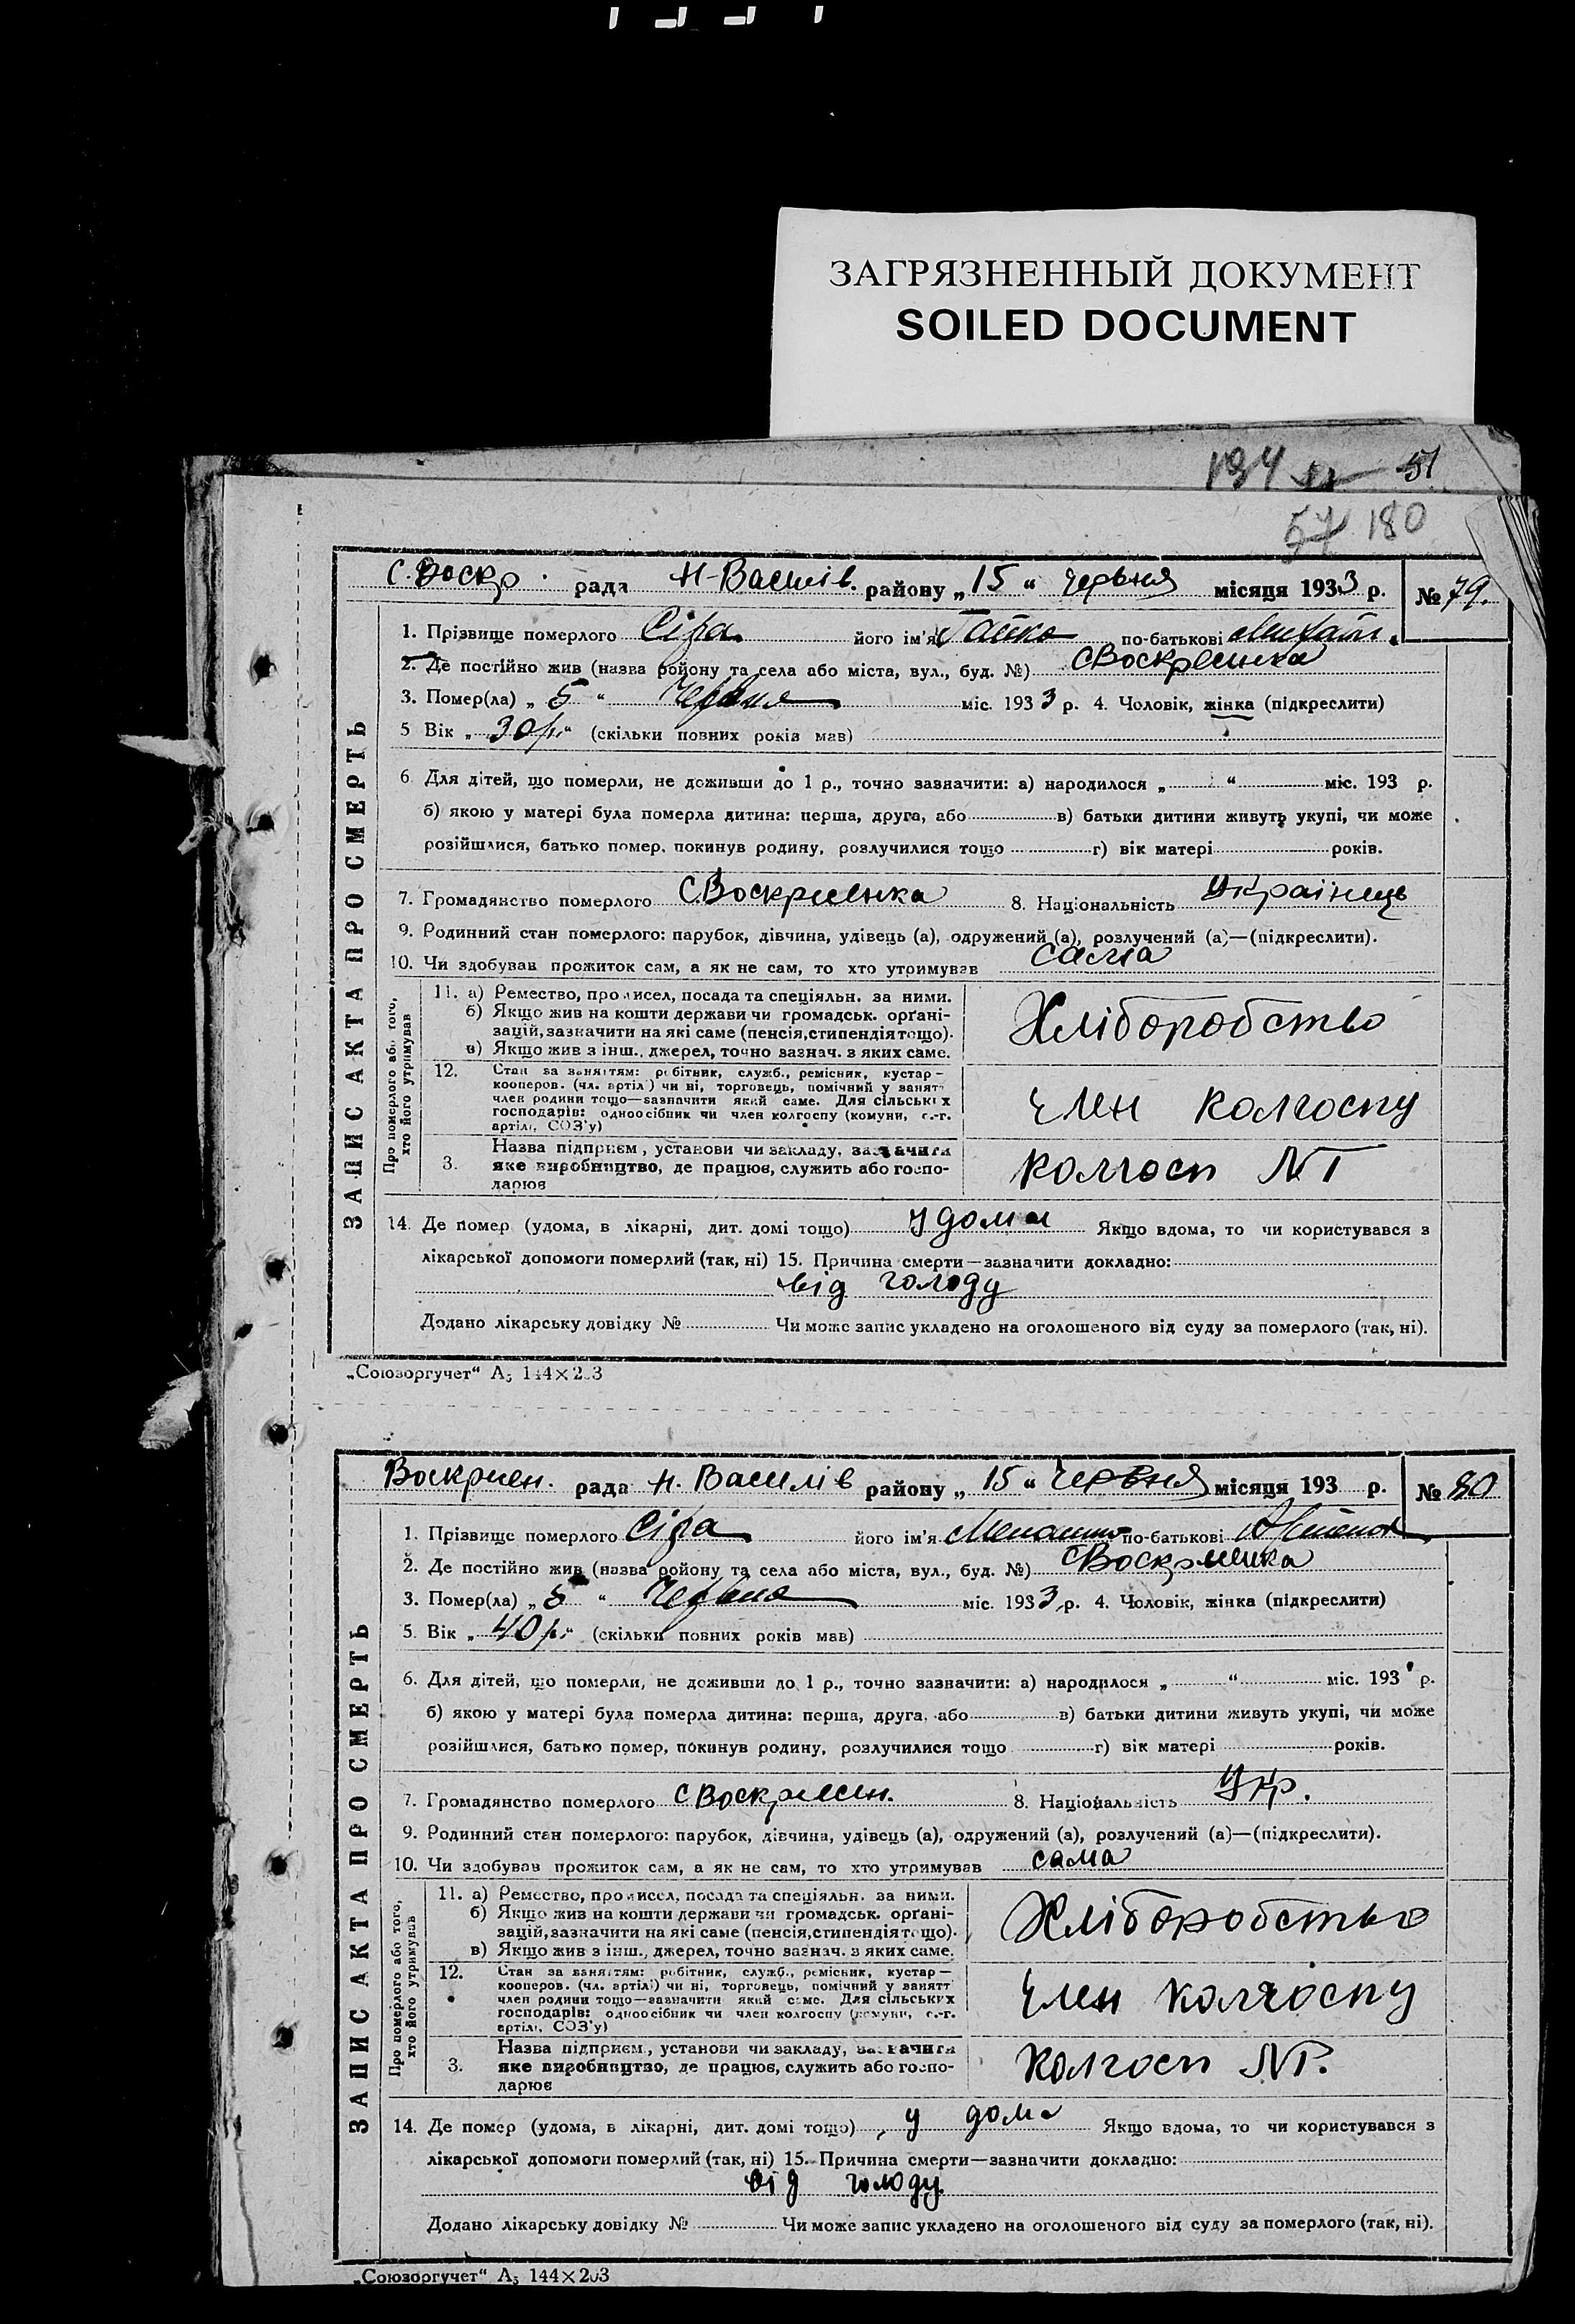 ЗАГРЯЗНЕННЫЙ ДОКУМЕНТ
SOILED DOCUMENT
194 51
57 180
ЗАПИС АКТА ПРО СМЕРТЬ
с. Воскр. рада Н-Василів. району „15“ червня місяця 1933 р. № 79.
1. Прізвище померлого Сіра його ім'я по-батькові
2. Де постійно жив (назва ройону та села або міста, вул., буд. №) с Воскресинка
3. Помер(ла) „5“ червня міс. 1933 р. 4. Чоловік, жінка (підкреслити)
5 Вік „30 р.“ (скільки повних років мав)
6. Для дітей, що померли, не доживши до 1 р., точно зазначити: а) народилося „ “ міс. 193 р.
б) якою у матері була померла дитина: перша, друга, або в) батьки дитини живуть укупі, чи може
розійшлися, батько помер, покинув родину, розлучилися тощо г) вік матері років.
7. Громадянство померлого 8. Національність Українець
9. Родинний стан померлого: парубок, дівчина, удівець (а), одружений (а), розлучений (а)—(підкреслити).
10. Чи здобував прожиток сам, а як не сам, то хто утримував сама
Про померлого або того, хто його утримував
11. а) Ремество, промисел, посада та спеціяльн. за ними.
б) Якщо жив на кошти держави чи громадськ. орґані-
зацій, зазначити на які саме (пенсія, стипендія тощо).
в) Якщо жив з інш., джерел, точно зазнач. з яких саме.
Хліборобство
12. Стан за заняттям: робітник, служб., ремісник, кустар—
кооперов. (чл. артілі) чи ні, торговець, помічний у занятт
член родини тощо—зазначити який саме. Для сільських
господарів: одноосібник чи член колгоспу (комуни, с.-г.
артілі, СОЗ'у)
член колгоспу
3. Назва підприєм., установи чи закладу, зазначити
яке виробництво, де працює, служить або госпо-
дарює
колгосп №1
14. Де помер (удома, в лікарні, дит. домі тощо) у дома Якщо вдома, то чи користувався з
лікарської допомоги померлий (так, ні) 15. Причина смерти—зазначити докладно:
від голоду
Додано лікарську довідку № Чи може запис укладено на оголошеного від суду за померлого (так, ні).
„Союзоргучет“ А5 144×203
ЗАПИС АКТА ПРО СМЕРТЬ
Воскрисен. рада Н. Василів району „15“ червня місяця 193 р. № 80
1. Прізвище померлого Сіра його ім'я по-батькові
2. Де постійно жив (назва ройону та села або міста, вул., буд. №) с Воскресинка
3. Помер(ла) „5“ червня міс. 1933 р. 4. Чоловік, жінка (підкреслити)
5. Вік „40 р.“ (скільки повних років мав)
6. Для дітей, що померли, не доживши до 1 р., точно зазначити: а) народилося „ “ міс. 193 р.
б) якою у матері була померла дитина: перша, друга, або в) батьки дитини живуть укупі, чи може
розійшлися, батько помер, покинув родину, розлучилися тощо г) вік матері років.
7. Громадянство померлого 8. Національність Укр.
9. Родинний стан померлого: парубок, дівчина, удівець (а), одружений (а), розлучений (а)—(підкреслити).
10. Чи здобував прожиток сам, а як не сам, то хто утримував сама
Про померлого або того, хто його утримував
11. а) Ремество, промисел, посада та спеціяльн. за ними.
б) Якщо жив на кошти держави чи громадськ. орґані-
зацій, зазначити на які саме (пенсія, стипендія тощо).
в) Якщо жив з інш., джерел, точно зазнач. з яких саме.
Хліборобство
12. Стан за заняттям: робітник, служб., ремісник, кустар—
кооперов. (чл. артілі) чи ні, торговець, помічний у занятт
член родини тощо—зазначити який саме. Для сільських
господарів: одноосібник чи член колгоспу (комуни, с.-г.
артілі, СОЗ'у)
член колгоспу
3. Назва підприєм., установи чи закладу, зазначити
яке виробництво, де працює, служить або госпо-
дарює
колгосп №1.
14. Де помер (удома, в лікарні, дит. домі тощо) у дома Якщо вдома, то чи користувався з
лікарської допомоги померлий (так, ні) 15. Причина смерти—зазначити докладно:
від голоду.
Додано лікарську довідку № Чи може запис укладено на оголошеного від суду за померлого (так, ні).
„Союзоргучет“ А5 144×203